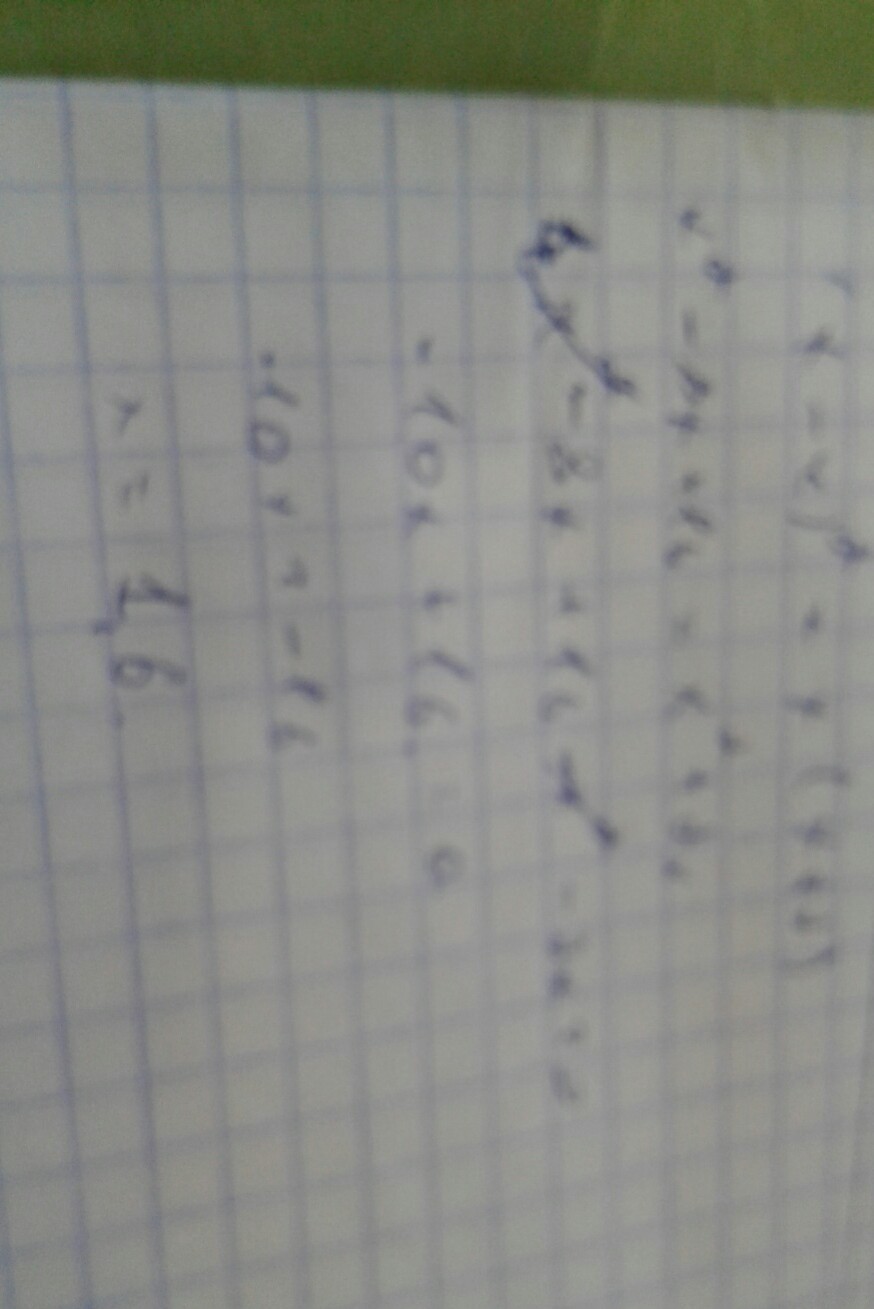 (x - 4)² = x (x + 2)
x² - 8x + 16 = x² + 2x
x² - 8x + 16 - x² - 2x = 0
-10x + 16 = 0
-10x = -16
x = 1,6